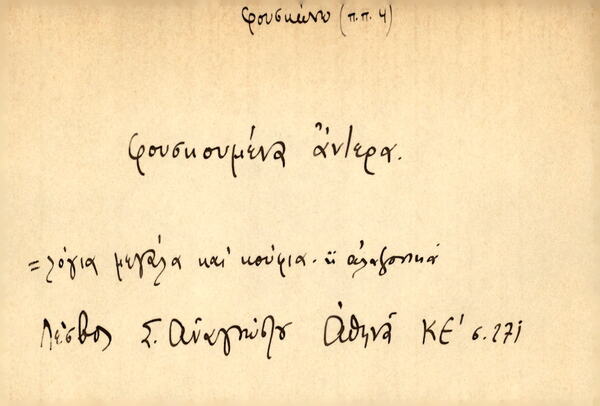 φουσκώνω (π.π. 4)
φουσκουμένα ἄντερα.
= λόγια μεγάλα καὶ κούφια. ἢ ἀλαζονικά
Λέσβος Σ. Αναγνώστου Ἀθηνᾶ ΚΕ' σ. 271